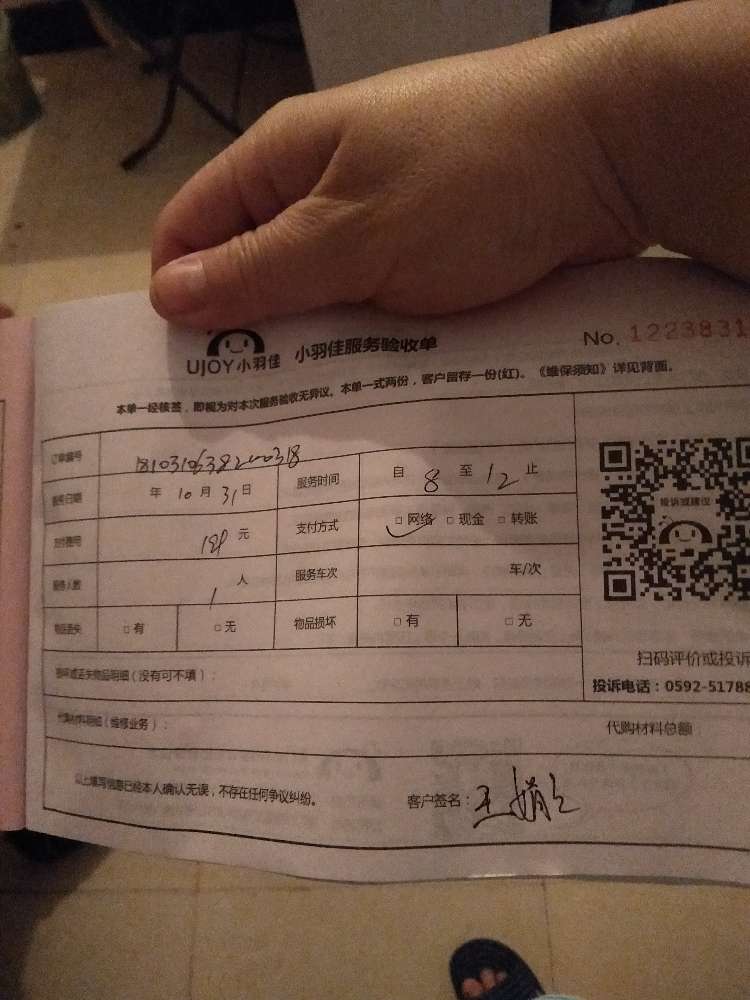 UJOY小羽佳 小羽佳服务验收单 No. 1223831
本单一经核签，即视为对本次服务验收无异议。本单一式两份，客户留存一份(红)。《维保须知》详见背面。
订单编号
服务日期 年 10 月 31 日 服务时间 自 8 至 12 止
支付费用 元 支付方式 □ 网络 □ 现金 □ 转账
服务人数 1 人 服务车次 车/次
物品丢失 □ 有 □ 无 物品损坏 □ 有 □ 无
损坏或丢失物品明细（没有可不填）：
代购材料明细（维修业务）： 代购材料总额
以上填写信息已经本人确认无误，不存在任何争议纠纷。 客户签名：
投诉或建议
扫码评价或投诉
投诉电话：0592-51788